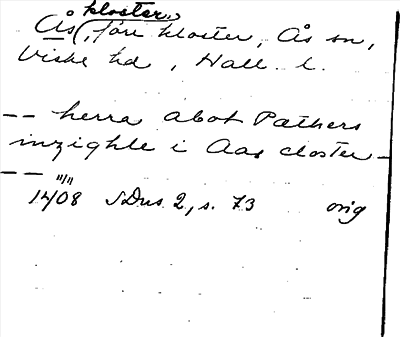 kloster,
Ås (, förr kloster, Ås sn,
Viske hd, Hall. l.
-- herra abot Pæthers
inzighle i Aas closter -
-- "/11
1408 SDns 2, s. 73 orig